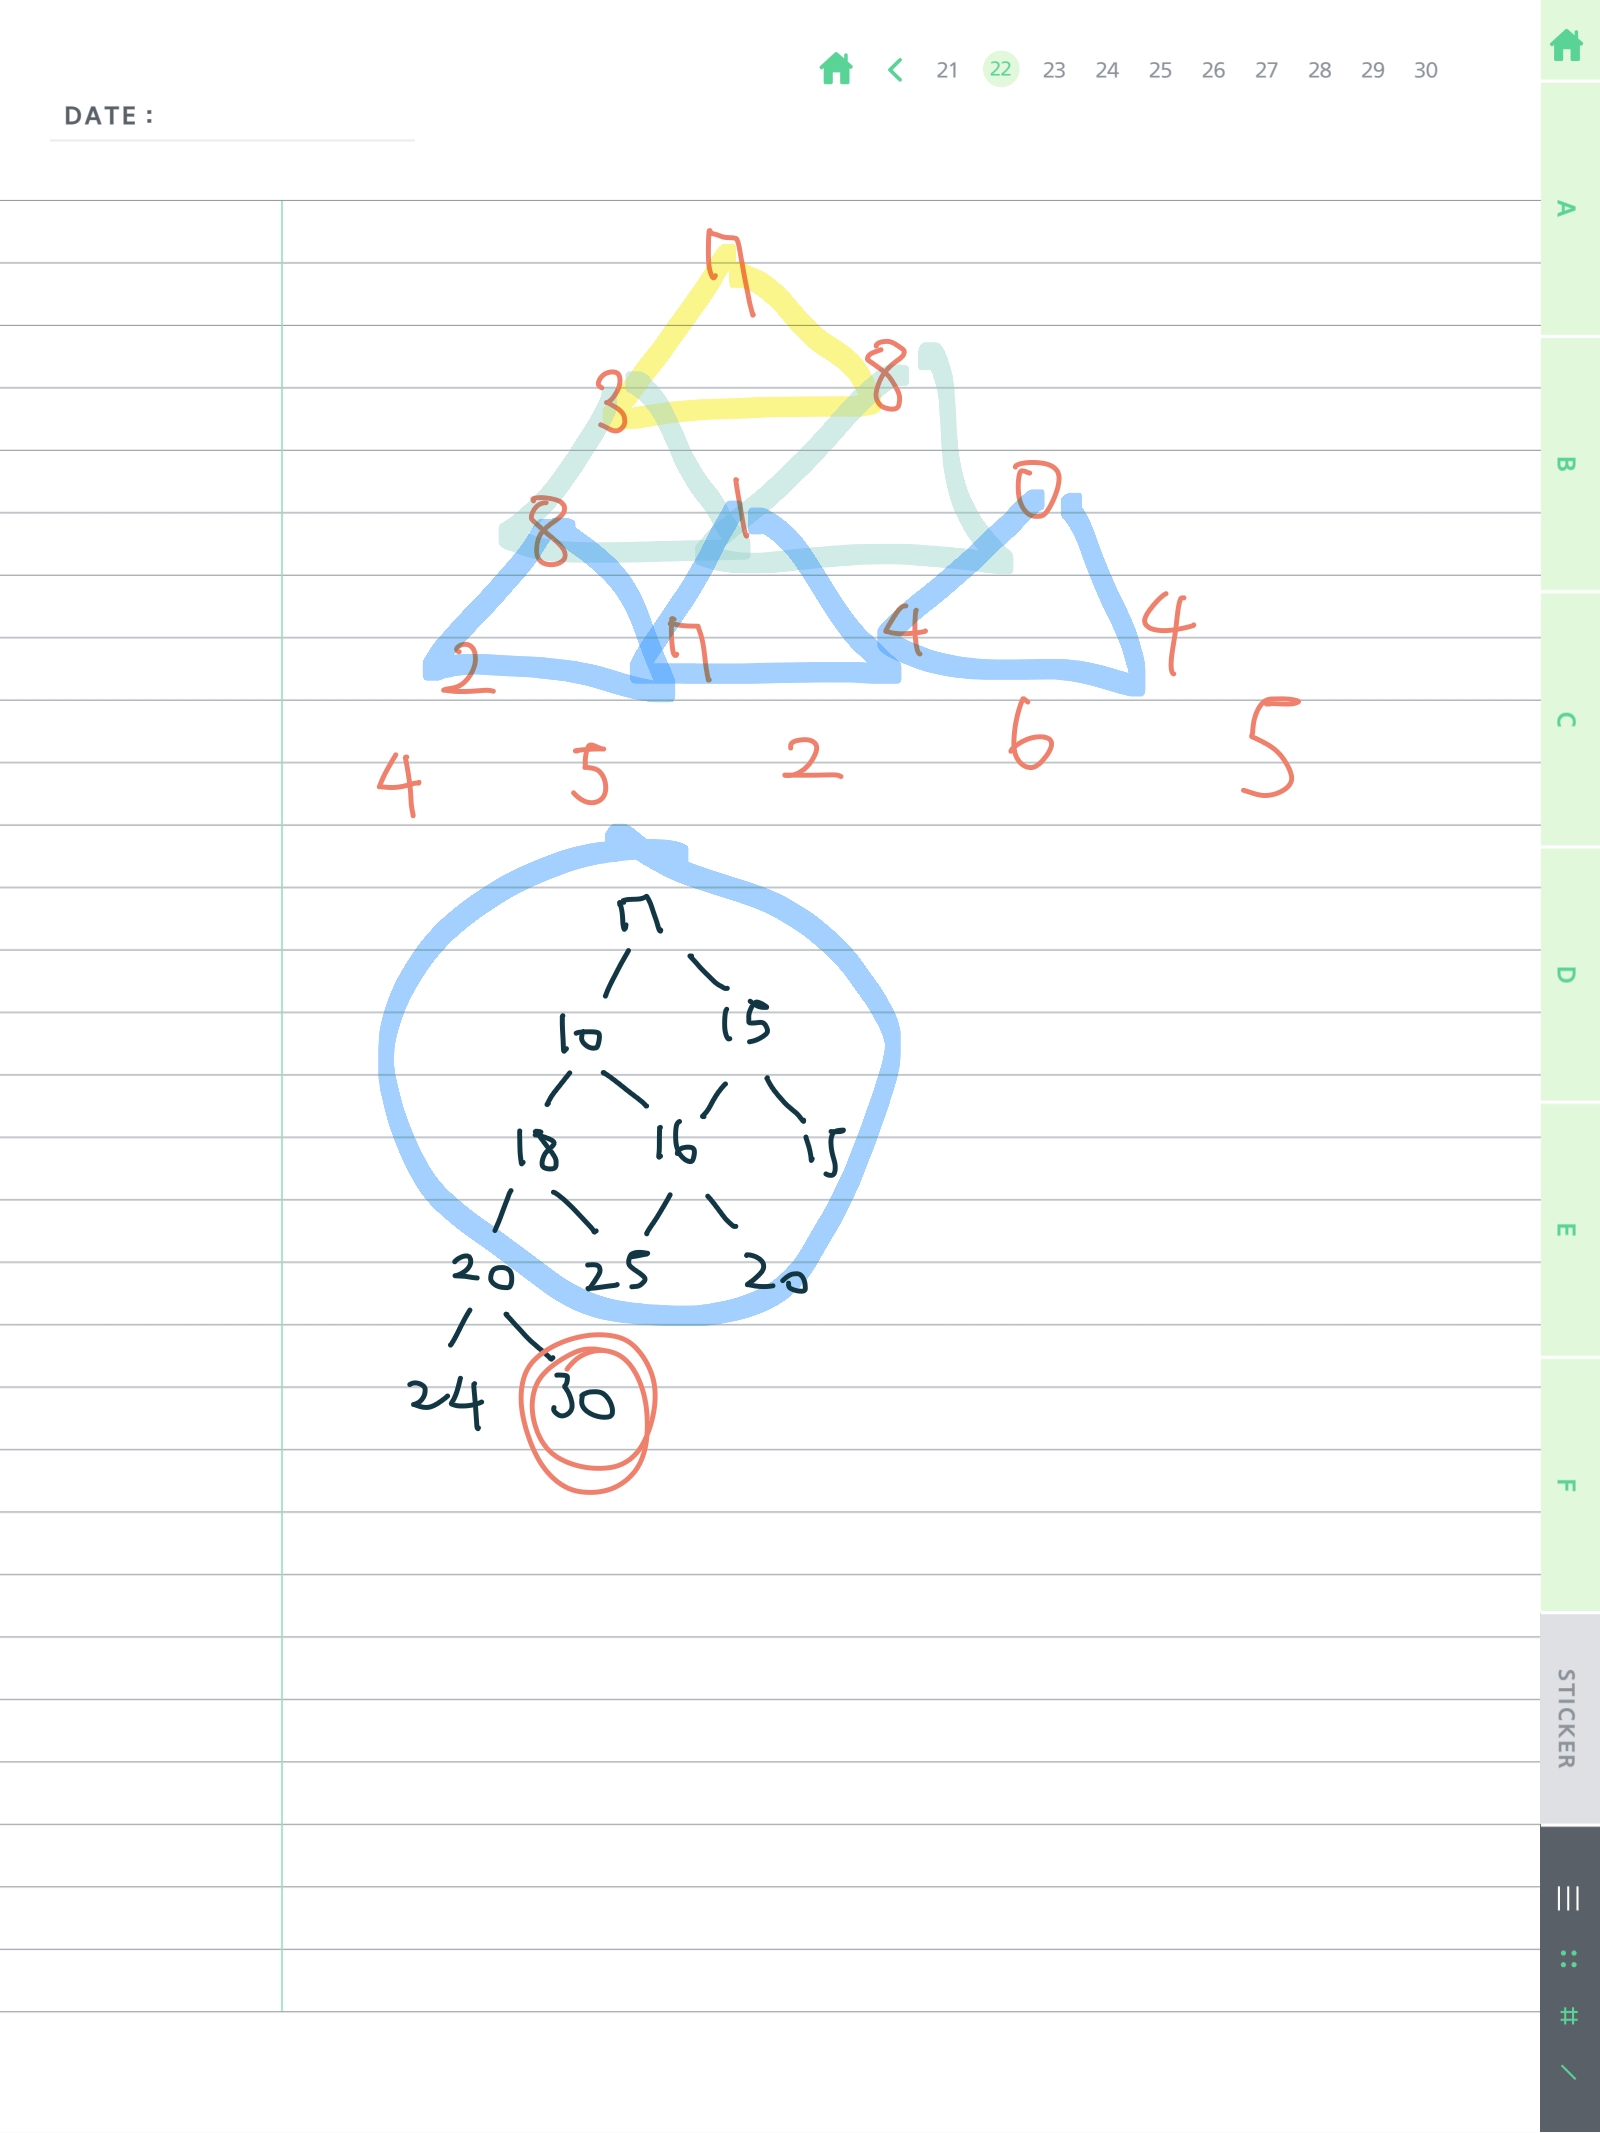 21 22 23 24 25 26 27 28 29 30
DATE :
7
3 8
8 1 0
2 7 4 4
4 5 2 6 5
7
10 15
18 16 15
20 25 20
24 30
A
B
C
D
E
F
STICKER